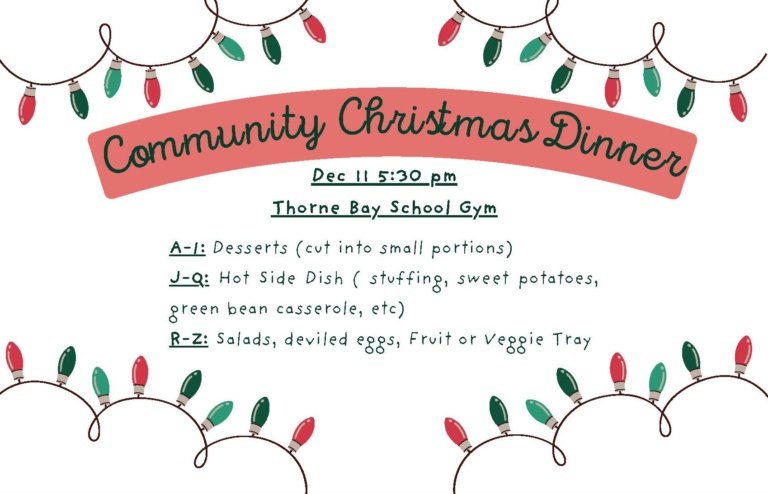 Community Christmas Dinner
Dec 11 5:30 pm
Thorne Bay School Gym
A-I: Desserts (cut into small portions)
J-Q: Hot Side Dish ( stuffing, sweet potatoes,
green bean casserole, etc)
R-Z: Salads, deviled eggs, Fruit or Veggie Tray